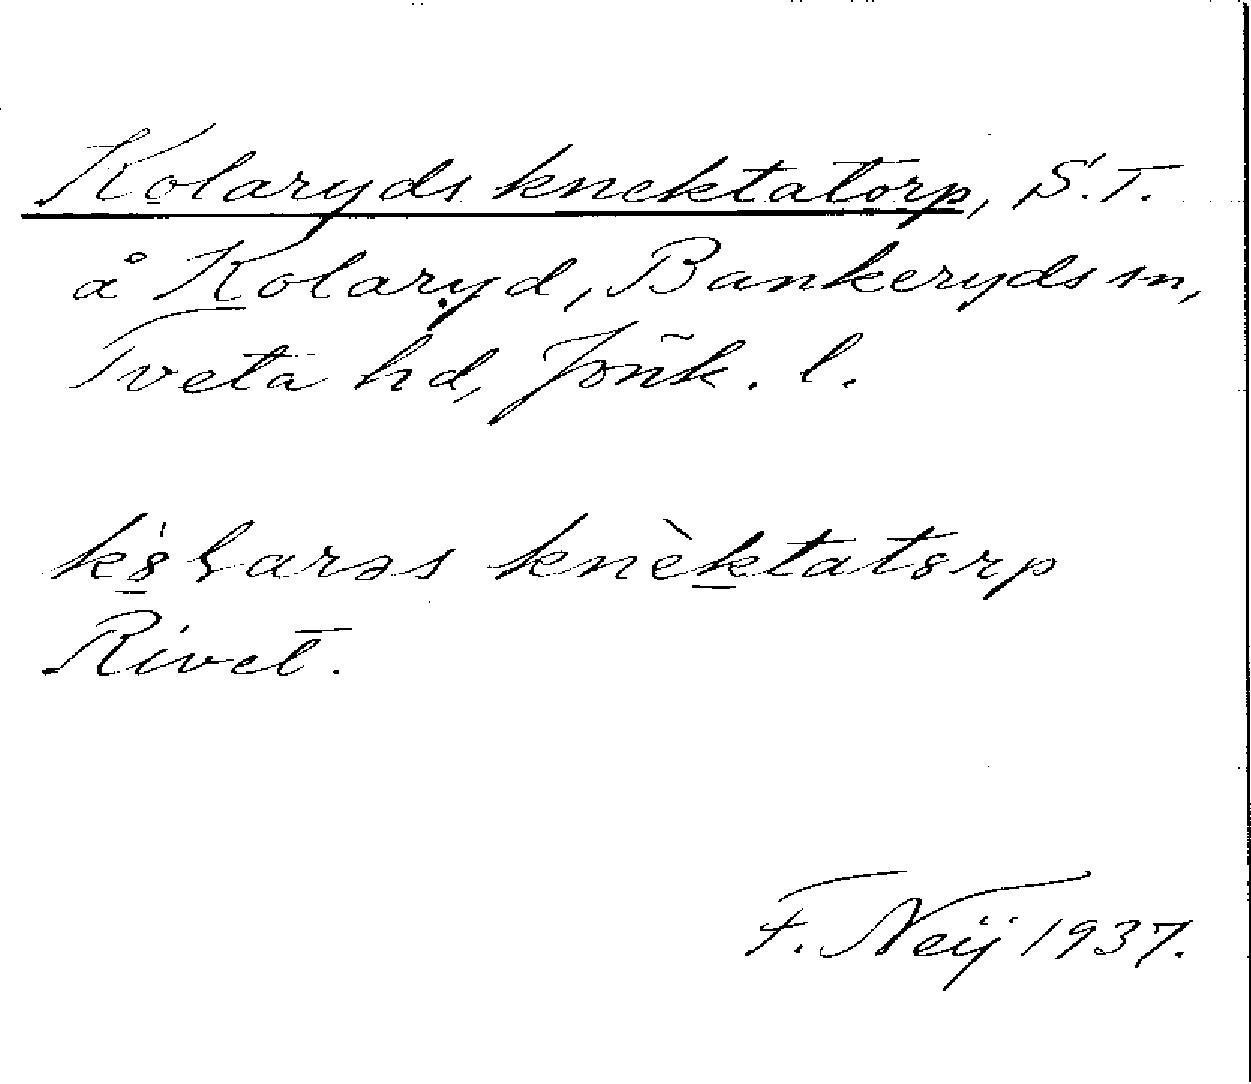 Kolaryds knektatorp, S.T.
å Kolaryd, Bankeryds sn,
Tveta hd, Jönk. l.
knèktatorp
Rivet.
F. Neij 1937.